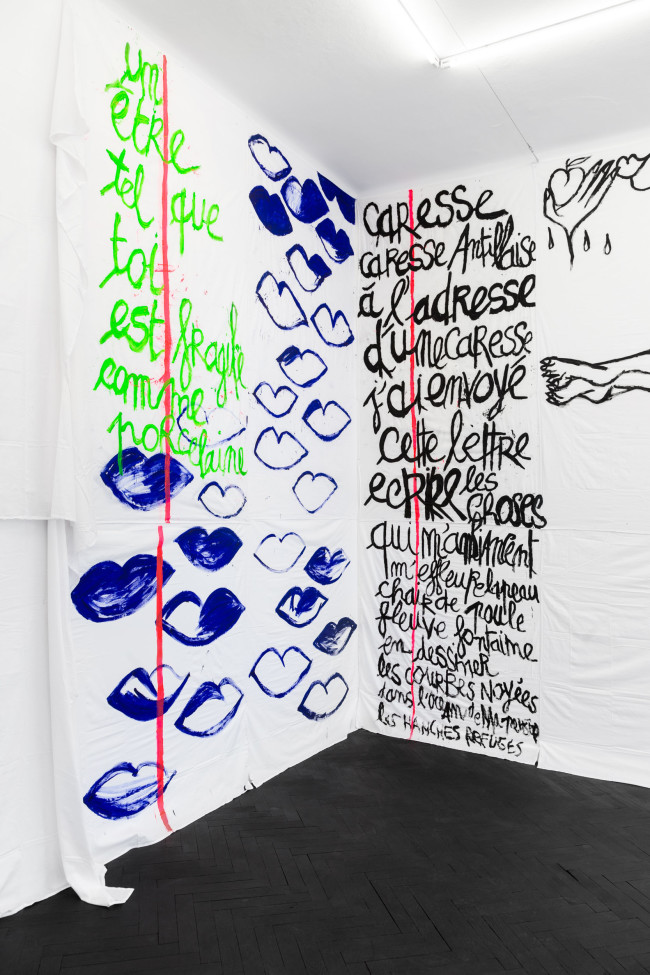 un
être
tel que
toi
est fragile
comme
porcelaine
caresse
caresse Antillaise
à l'adresse
d'une caresse
j'ai envoyé
cette lettre
ecrire les
choses
qui m'animent
m'effleure la peau
chair de poule
fleuve fontaine
en dessiner
les courbes noyées
dans l'océan de ma
les HANCHES REFUGES